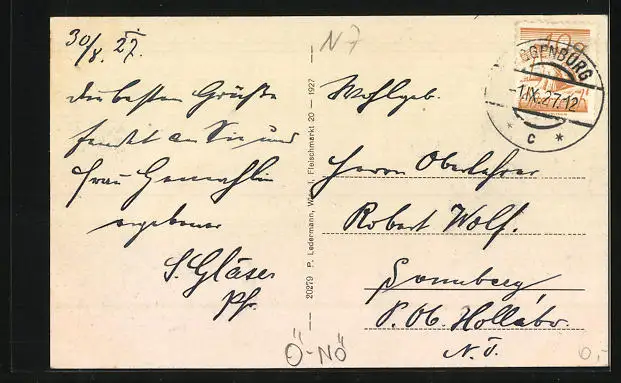 30/8. 27.
Die besten Grüße
sendet an Sie und
Frau Gemahlin
ergebener
S. Gläser
Pfr.
N7
20279 P. Ledermann, Wien I, Fleischmarkt 20 — 1927
Ö-NÖ
GGENBURG
-1.IX.27.12
* C *
Wohlgeb.
Herrn Oberlehrer
Robert Wolf.
Sonnberg
P. Ob. Hollabr.
N. Ö.
0,-